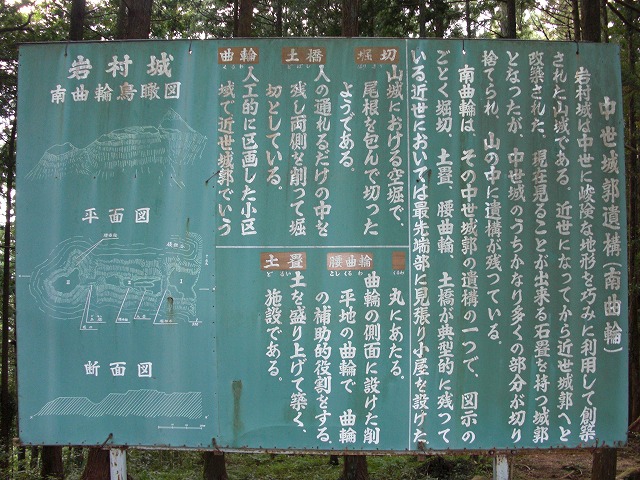 中世城郭遺構(南曲輪)
岩村城は中世に峻険な地形を巧みに利用して創築
された山城である。近世になってから近世城郭へと
改築された。現在見ることが出来る石畳を持つ城郭
となったが、中世城のうちかなり多くの部分が切り
捨てられ、山の中に遺構が残っている。
南曲輪は、その中世城郭の遺構の一つで、図示の
ごとく堀切、土畳、腰曲輪、土橋が典型的に残って
いる近世においては最先端部に見張り小屋を設けた
堀切
ほりきり
山城における空堀で、
尾根を包んで切った
ようである。
土橋
どばし
人の通れるだけの中を
残し両側を削って堀
切としている。
曲輪
くるわ
人工的に区画した小区
域で近世城郭でいう
曲輪
くるわ
丸にあたる。
腰曲輪
こしくるわ
曲輪の側面に設けた削
平地の曲輪で 曲輪
の補助的役割をする。
土畳
どるい
土を盛り上げて築く、
施設である。
岩村城
南曲輪鳥瞰図
平面図
断面図